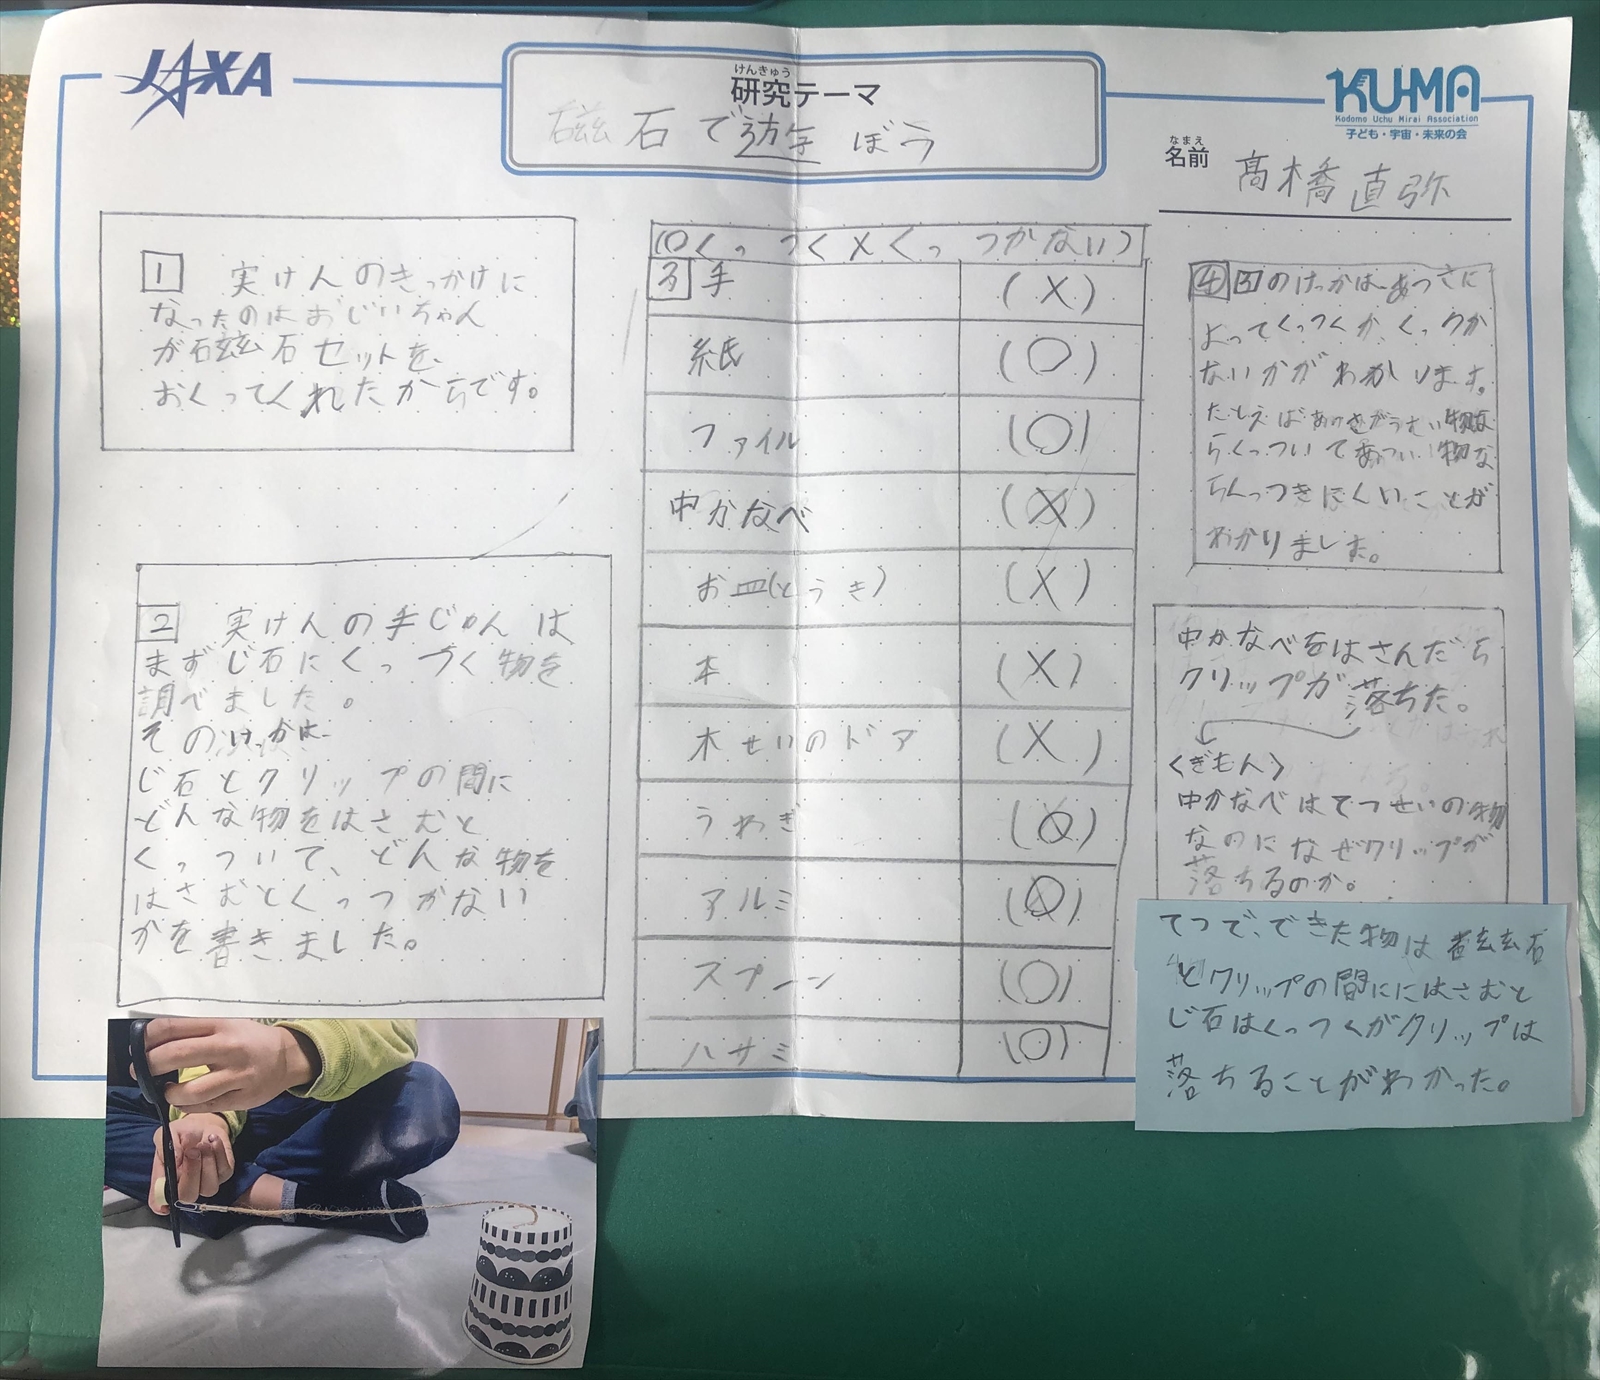 JAXA
けんきゅう
研究テーマ
磁石で遊ぼう
KU-MA
Kodomo Uchu Mirai Association
子ども・宇宙・未来の会
なまえ
名前 髙橋直弥
1 実けんのきっかけに
なったのはおじいちゃん
が磁石セットを、
おくってくれたからです。
2 実けんの手じゅんは
まずじ石にくっつく物を
調べました。
そのけっかは、
じ石とクリップの間に
どんな物をはさむと
くっついて、どんな物を
はさむとくっつかない
かを書きました。
(○くっつく×くっつかない)
3 手 (×)
紙 (○)
ファイル (○)
中かなべ (×)
お皿(とうき) (×)
本 (×)
木せいのドア (×)
うわぎ
アルミ
スプーン (○)
ハサミ (○)
4 3のけっかは、あつさに
よってくっつくか、くっつか
ないかがわかります。
たとえばあつさがうすい物な
らくっついてあつい物な
らくっつきにくいことが
わかりました。
中かなべをはさんだら
クリップが落ちた。
<ぎもん>
中かなべはてつせいの物
なのになぜクリップが
落ちるのか。
てつで、できた物は磁石
とクリップの間ににはさむと
じ石はくっつくがクリップは
落ちることがわかった。